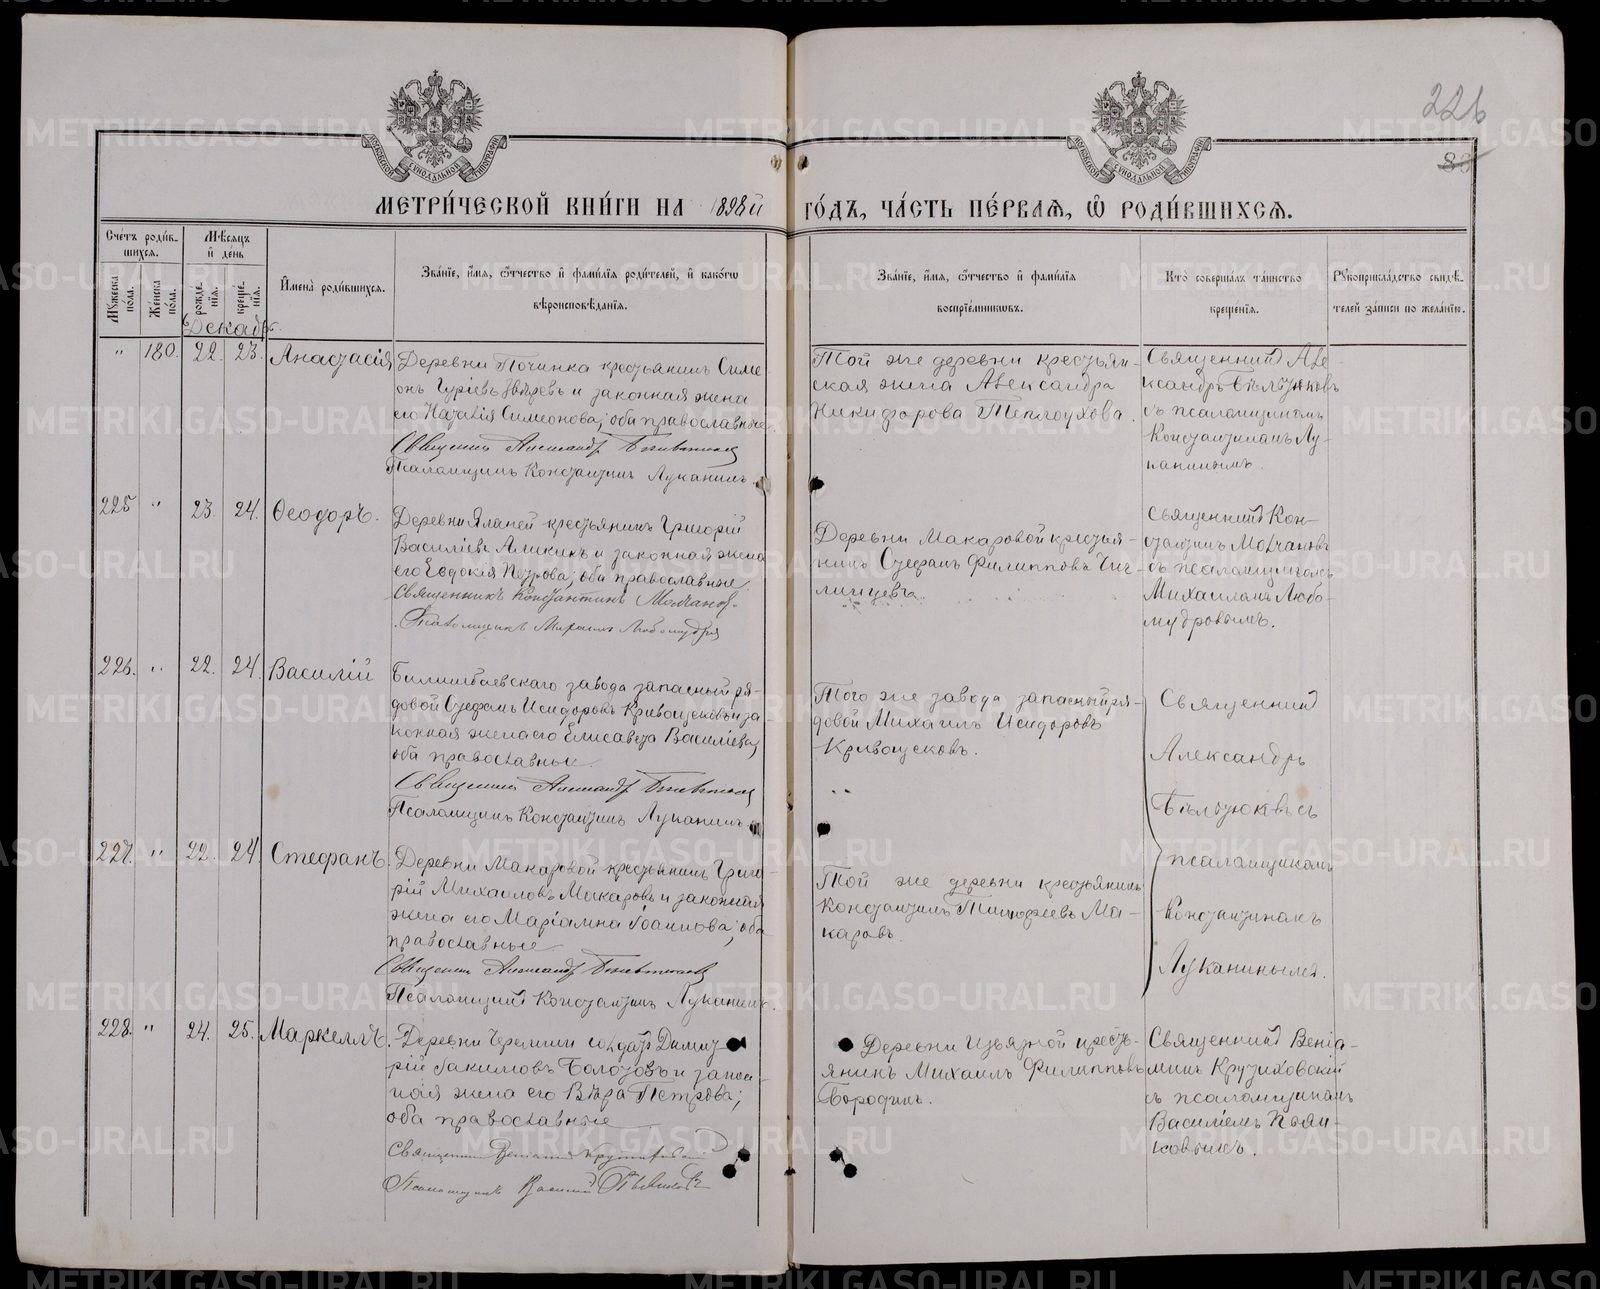 226
88
МОСКОВСКОЙ СѴНОДАЛЬНОЙ ТИПОГРАФІИ
МОСКОВСКОЙ СѴНОДАЛЬНОЙ ТИПОГРАФІИ
МЕТРИ́ЧЕСКОЙ КНИ́ГИ НА 1898й ГО́ДЪ, ЧА́СТЬ ПЕ́РВАѦ, Ѡ҆ РОДИ́ВШИХСѦ.
Сче́тъ роди́в-
шихсѧ.
Мꙋжеска пола.
Же́нска по́ла.
Мѣ́сѧцъ
и҆ де́нь
рожде́нїѧ.
креще́нїѧ.
И҆мена̀ роди́вшихсѧ.
Зва́нїе, и҆́мѧ, ѻ҆́тчество и҆ фами́лїѧ роди́телей, и҆ како́гѡ
вѣроисповѣ́данїѧ.
Зва́нїе, и҆́мѧ, ѻ҆́тчество и҆ фами́лїѧ
воспрїе́мникѡвъ.
Кто̀ соверша́лъ та́инство
креще́нїѧ.
Рꙋкоприкла́дство свидѣ́-
телей за́писи по жела́нїю.
Декабрь.
" 180. 22. 23. Анастасія
Деревни Починка крестьянинъ Симе-
онъ Гуріевъ Звѣревъ и законная жена
его Наталія Симеонова; оба православные.
Священникъ Александръ Бѣльтюковъ
Псаломщикъ Константинъ Луканинъ.
Той же деревни крестьян-
ская жена Александра
Никифорова Теплоухова.
Священникъ Але-
ксандръ Бѣльтюковъ
съ псаломщикомъ
Константиномъ Лу-
канинымъ.
225 " 23. 24. Ѳеодоръ.
Деревни Яланей крестьянинъ Григорій
Василіевъ Аликинъ и законная жена
его Евдокія Петрова; оба православные.
Священникъ Константинъ Молчановъ.
Псаломщикъ Михаилъ Любомудровъ
Деревни Макаровой крестья-
нинъ Стефанъ Филипповъ Чи-
линцевъ.
Священникъ Кон-
стантинъ Молчановъ
съ псаломщикомъ
Михаиломъ Любо-
мудровымъ.
226. " 22. 24. Василій
Билимбаевскаго завода запасный ря-
довой Стефанъ Исидоровъ Кривощековъ и за-
конная жена его Елисавета Василіева;
оба православные.
Священникъ Александръ Бѣльтюковъ
Псаломщикъ Константинъ Луканинъ.
Того же завода запасный ря-
довой Михаилъ Исидоровъ
Кривощековъ.
Священникъ
Александръ
Бѣльтюковъ съ
псаломщикомъ
Константиномъ
Луканинымъ.
227. " 22. 24 Стефанъ.
Деревни Макаровой крестьянинъ Григо-
рій Михаиловъ Макаровъ и законная
жена его Маріамна Іоаннова; оба
православные.
Священникъ Александръ Бѣльтюковъ
Псаломщикъ Константинъ Луканинъ.
Той же деревни крестьянинъ
Константинъ Тимофеевъ Ма-
каровъ.
228. " 24. 25. Маркеллъ.
Деревни Черемши солдатъ Димит-
рій Іакимовъ Болотовъ и закон-
ная жена его Вѣра Петрова;
оба православные.
Священникъ Веніаминъ Крутиховскій
Псаломщикъ Василій Пьянковъ
Деревни Извязной кресть-
янинъ Михаилъ Филипповъ
Бородинъ.
Священникъ Веніа-
минъ Крутиховскій
съ псаломщикомъ
Василіемъ Пьян-
ковымъ.
METRIKI.GASO-URAL.RU